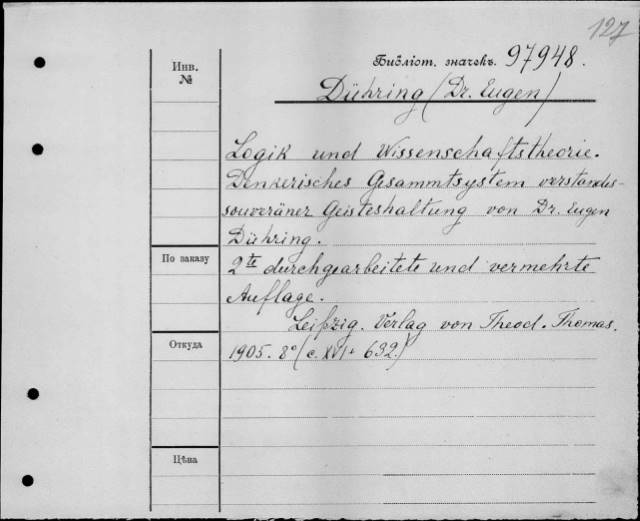 127
Инв.
№
Библіот. значекъ 97948.
Dühring (Dr. Eugen)
Logik und Wissenschaftstheorie.
Denkerisches Gesammtsystem verstandes-
souveräner Geisteshaltung von Dr. Eugen
Dühring.
По заказу
2te durchgearbeitete und vermehrte
Auflage.
Leipzig. Verlag von Theod. Thomas.
Откуда
1905. 8° (c. XVI + 632.)
Цѣна